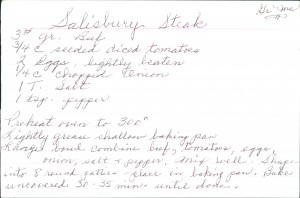 Salisbury Steak
3# gr. Beef
3/4 c seeded diced tomatoes
2 Eggs, lightly beaten
1/4 c chopped onion
1 T. Salt
1 tsp. pepper
Preheat oven to 300°
Lightly grease shallow baking pan
Large bowl combine beef, tomatoes, eggs,
onion, salt + pepper. Mix well. Shape
into 8 round patties - place in baking pan. Bake
uncovered 30-35 min - until done.